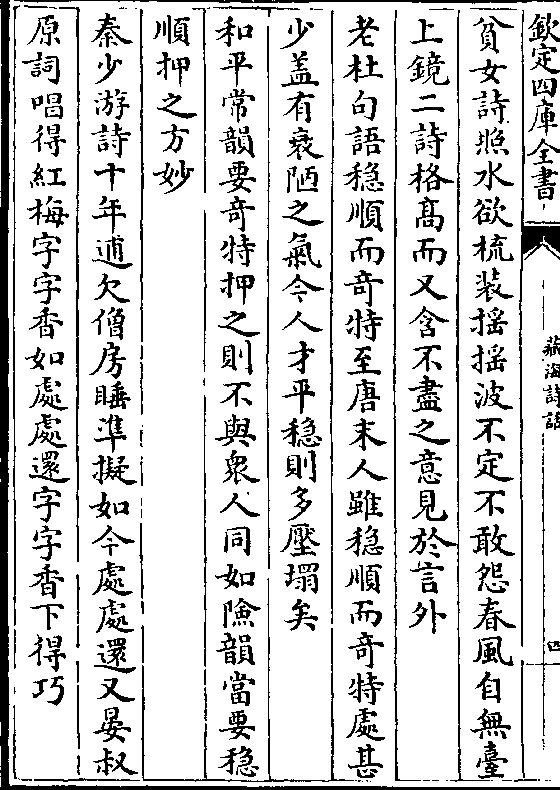 欽定四庫全書
藏海詩話
四
貧女詩照水欲梳装搖搖波不定不敢怨春風自無臺
上鏡二詩格髙而又含不盡之意見於言外
老杜句語穏順而奇特至唐末人雖穏順而奇特處甚
少盖有衰陋之氣今人才平穏則多壓塌矣
和平常韻要奇特押之則不與衆人同如險韻當要穏
順押之方妙
秦少游詩十年逋欠僧房睡準擬如今處處還又晏叔
原詞唱得紅梅字字香如處處還字字香下得巧